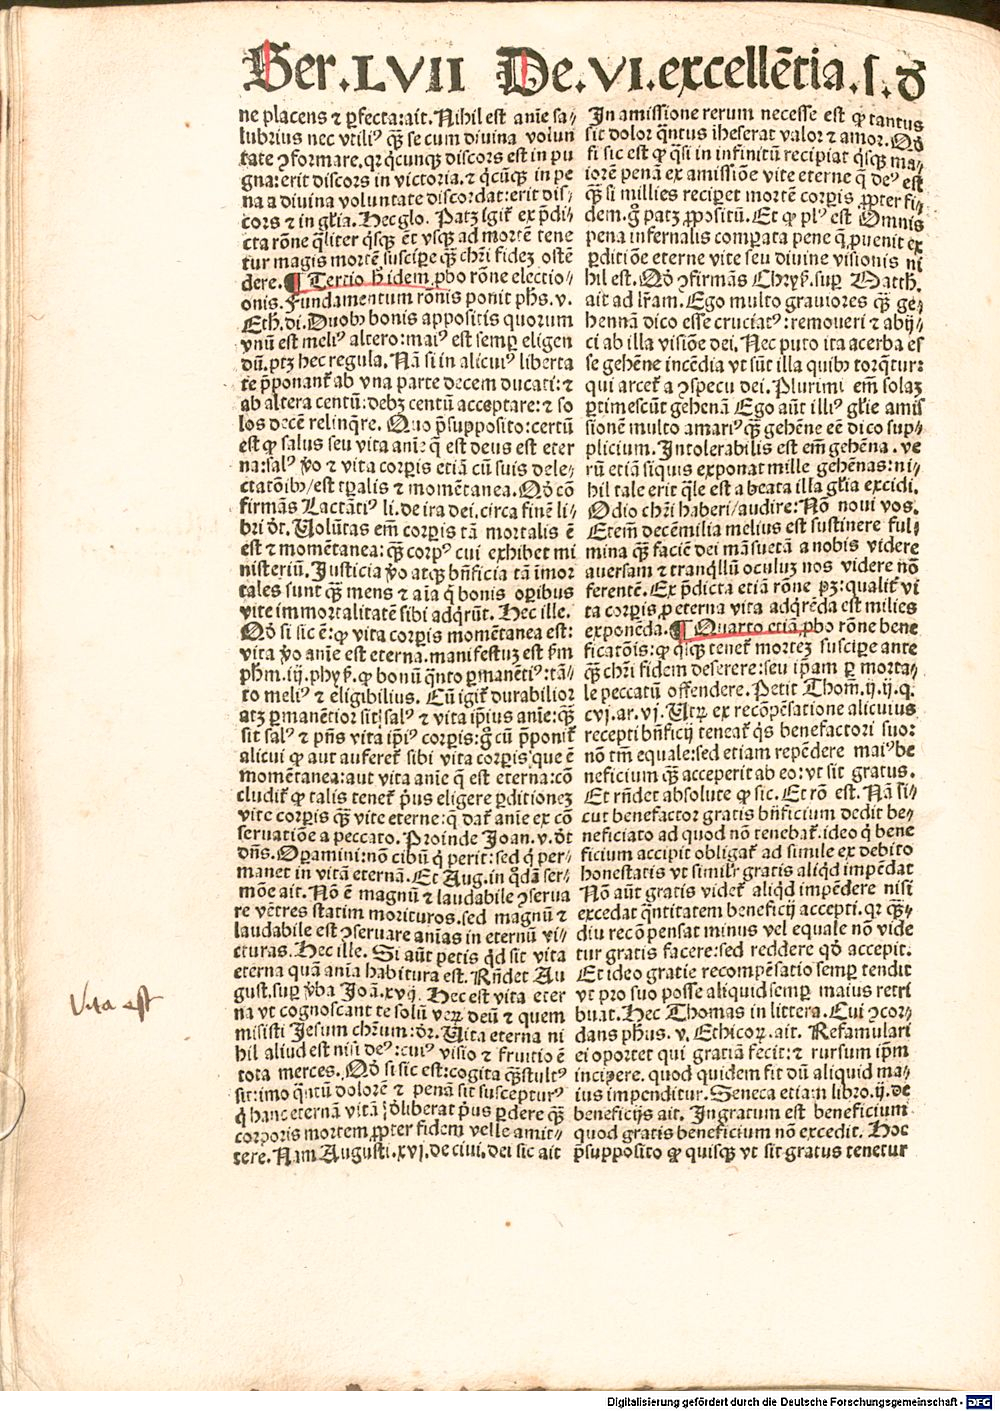 Ser.LVII De.VI.excellẽtia.ſ.ð
ne placens ⁊ ꝑfecta: ait. Nihil est aniẽ sa⸗
lubrius nec vtiliꝰ qꝫ̃ se cum diuina volun
tate ꝯformare. qꝛ qͥcunqꝫ discors est in pu
gna: erit discors in victoria. ⁊ qͥcũqꝫ in pe
na a diuina voluntate discordat: erit dis⸗
cors ⁊ in gl̃ia. Hec glo. Patꝫ igit̃ ex p̃di⸗
cta rõne qͣliter qͥsqꝫ ẽt vsqꝫ ad mortẽ tene
tur magis mortẽ suscipe qꝫ̃ chr̃i fidẽ ostẽ
dere. ¶ Tercio h̃ idem ꝓbo rõne electio⸗
onis. Fundamentum rõnis ponit ph̃s. v.
Eth. di. Duobꝰ bonis appositis quorum
vnũ est meliꝰ altero: maiꝰ est semꝑ eligen
dũ. ptꝫ hec regula. Nã si in alicuiꝰ liberta
te p̃ponant̃ ab vna parte decem ducati: ⁊
ab altera centũ: debꝫ centũ acceptare: ⁊ so
los decẽ relinqͣre. Quo p̃supposito: certũ
est ꝙ salus seu vita anie: q̃ est deus est eter
na: salꝰ v̊o ⁊ vita corꝑis etiã cũ suis dele⸗
ctatõibꝰ/est tꝑalis ⁊ momẽtanea. Qð cõ
firmãs Lactãtiꝰ li. de ira dei. circa finẽ li⸗
bri ðt. Volũtas em̃ corꝑis tã mortalis ẽ
est ⁊ momẽtanea: qꝫ̃ corpꝰ cui exhibet mi
nisteriũ. Justicia v̊o atqꝫ bñficia tã ĩmor
tales sunt qꝫ̃ mens ⁊ aĩa q̃ bonis oꝑibus
vite immortalitatẽ sibi adqͥrũt. Hec ille.
Qð si sic ẽ: ꝙ vita corꝑis momẽtanea est:
vita v̊o anie est eterna. manifestuꝫ est ẜm
phm. iij. phyẜ. ꝙ bonũ qͣnto ꝑmanẽtiꝰ: tã⸗
to meliꝰ ⁊ eligibilius. Cũ igit̃ durabilior
atꝫ ꝑmanẽtior sit salꝰ ⁊ vita ip̃ius anie: qꝫ̃
sit salꝰ ⁊ pñs vita ip̃iꝰ corꝑis: gͦ cũ p̃ponit̃
alicui ꝙ aut auferet̃ sibi vita corꝑis que ẽ
momẽtanea: aut vita anie q̃ est eterna: cõ
cludit̃ ꝙ talis tenet̃ pͥus eligere ꝑditioneꝫ
vite corꝑis qꝫ̃ vite eterne: q̃ dat̃ anie ex cõ
seruatiõe a peccato. Proinde Joan. v. ðt
dñs. Oꝑamini: nõ cibũ q̇ perit: sed q̇ per⸗
manet in vitã eternã. Et Aug. in qͦdã ser⸗
mõe ait. Nõ ẽ magnũ ⁊ laudabile ꝯserua
re vẽtres statim morituros. sed magnũ ⁊
laudabile est ꝯseruare anias in eternũ vi⸗
cturas. Hec ille. Si aũt petis qͥd sit vita
eterna quã ania habitura est. Rñdet Au
gust. suꝑ v̊ba Joã. xvij. Hec est vita eter
na vt cognoscant te solũ veꝝ deũ ⁊ quem
misisti Jesum chr̃um: ðr. Vita eterna ni
hil aliud est nisi deꝰ: cuiꝰ visio ⁊ fruitio ẽ
tota merces. Qð si sic est: cogita qꝫ̃ stultꝰ
sit: imo qͣntũ dolorẽ ⁊ penã sit suscepturꝰ
q̇ hanc eternã vitã ꝺ̃liberat pͥus ꝑdere qꝫ̃
corporis mortem ꝓpter fidem velle amit⸗
tere. Nam Augusti. xvj. de ciui. dei sic ait
In amissione rerum necesse est ꝙ tantus
sit dolor qͣntus iheserat valor ⁊ amor. Qð
si sic est ꝙ qͣsi in infinitũ recipiat qͥsqꝫ ma⸗
iorẽ penã ex amissiõe vite eterne q̃ deꝰ est
qꝫ̃ si millies reciꝑet mortẽ corꝑis ꝓpter fi⸗
dem. gͦ patꝫ ꝓpositũ. Et ꝙ plꝰ est Omnis
pena infernalis comparata pene q̃ ꝓuenit ex
ꝑditiõe eterne vite seu diuine visionis ni
hil est. Qð ꝯfirmãs Chryẜ. suꝑ Matth.
ait ad lr̃am. Ego multo grauiores qꝫ̃ ge⸗
hennã dico esse cruciatꝰ: remoueri ⁊ abij⸗
ci ab illa visiõe dei. Nec puto ita acerba es
se gehẽne incẽdia vt sũt illa quibꝰ torq̃tur:
qui arcet̃ a ꝯspecu dei. Plurimi em̃ solaꝫ
ꝑtimescũt gehenã Ego aũt illiꝰ gl̃ie amis
sionẽ multo amariꝰ qꝫ̃ gehẽne eẽ dico sup⸗
plicium. Intolerabilis est em̃ gehẽna. ve
rũ etiã siquis exponat mille gehẽnas: ni⸗
hil tale erit qͣle est a beata illa gl̃ia excidi.
Odio chr̃i haberi/audire: Nõ noui vos.
Etem̃ decẽmilia melius est sustinere ful⸗
mina qꝫ̃ faciẽ dei mãsuetã a nobis videre
auersam ⁊ tranqͥllũ oculuꝫ nos videre nõ
ferentẽ. Ex p̃dicta etiã rõne pꝫ: qualit̃ vi
ta corꝑis ꝓ eterna vita adqͥrẽda est milies
exponẽda. ¶ Quarto etiã ꝓbo rõne bene
ficatõis: ꝙ qͥsqꝫ tenet̃ morteꝫ suscipere ante
qꝫ̃ chr̃i fidem deserere: seu ip̃am ꝑ morta⸗
le peccatũ offendere. Petit Thom. ij. ij. q.
cvj. ar. vj. Utꝝ ex recõpẽsatione alicuius
recepti bñficij teneat̃ qͥs benefactori suo:
nõ tm̃ equale: sed etiam repẽdere maiꝰ be
neficium qꝫ̃ acceperit ab eo: vt sit gratus.
Et rñdet absolute ꝙ sic. Et rõ est. Nã si⸗
cut benefactor gratis bñficium dedit be⸗
neficiato ad quod nõ tenebat̃. ideo q̇ bene
ficium accipit obligat̃ ad simile ex debito
honestatis vt simil̃r gratis aliqͥd impẽdat
Nõ aũt gratis videt̃ aliqͥd impẽdere nisi
excedat qͣntitatem beneficij accepti. qꝛ qꝫ̃⸗
diu recõpensat minus vel equale nõ vide
tur gratis facere: sed reddere qð accepit.
Et ideo gratie recompẽsatio semꝑ tendit
vt pro suo posse aliquid semꝑ maius retri
buat. Hec Thomas in littera. Cui ꝯcor⸗
dans phus. v. Ethicoꝝ. ait. Refamulari
ei oportet qui gratiã fecit: ⁊ rursum ip̃m
incipere. quod quidem fit dũ aliquid ma⸗
ius impenditur. Seneca etiam libro. ij. de
beneficijs ait. Ingratum est beneficium
quod gratis beneficium nõ excedit. Hoc
p̃supposito ꝙ quisqꝫ vt sit gratus tenetur
Vita est
Digitalisierung gefördert durch die Deutsche Forschungsgemeinschaft - DFG